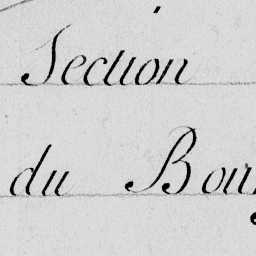 Section
du Bour